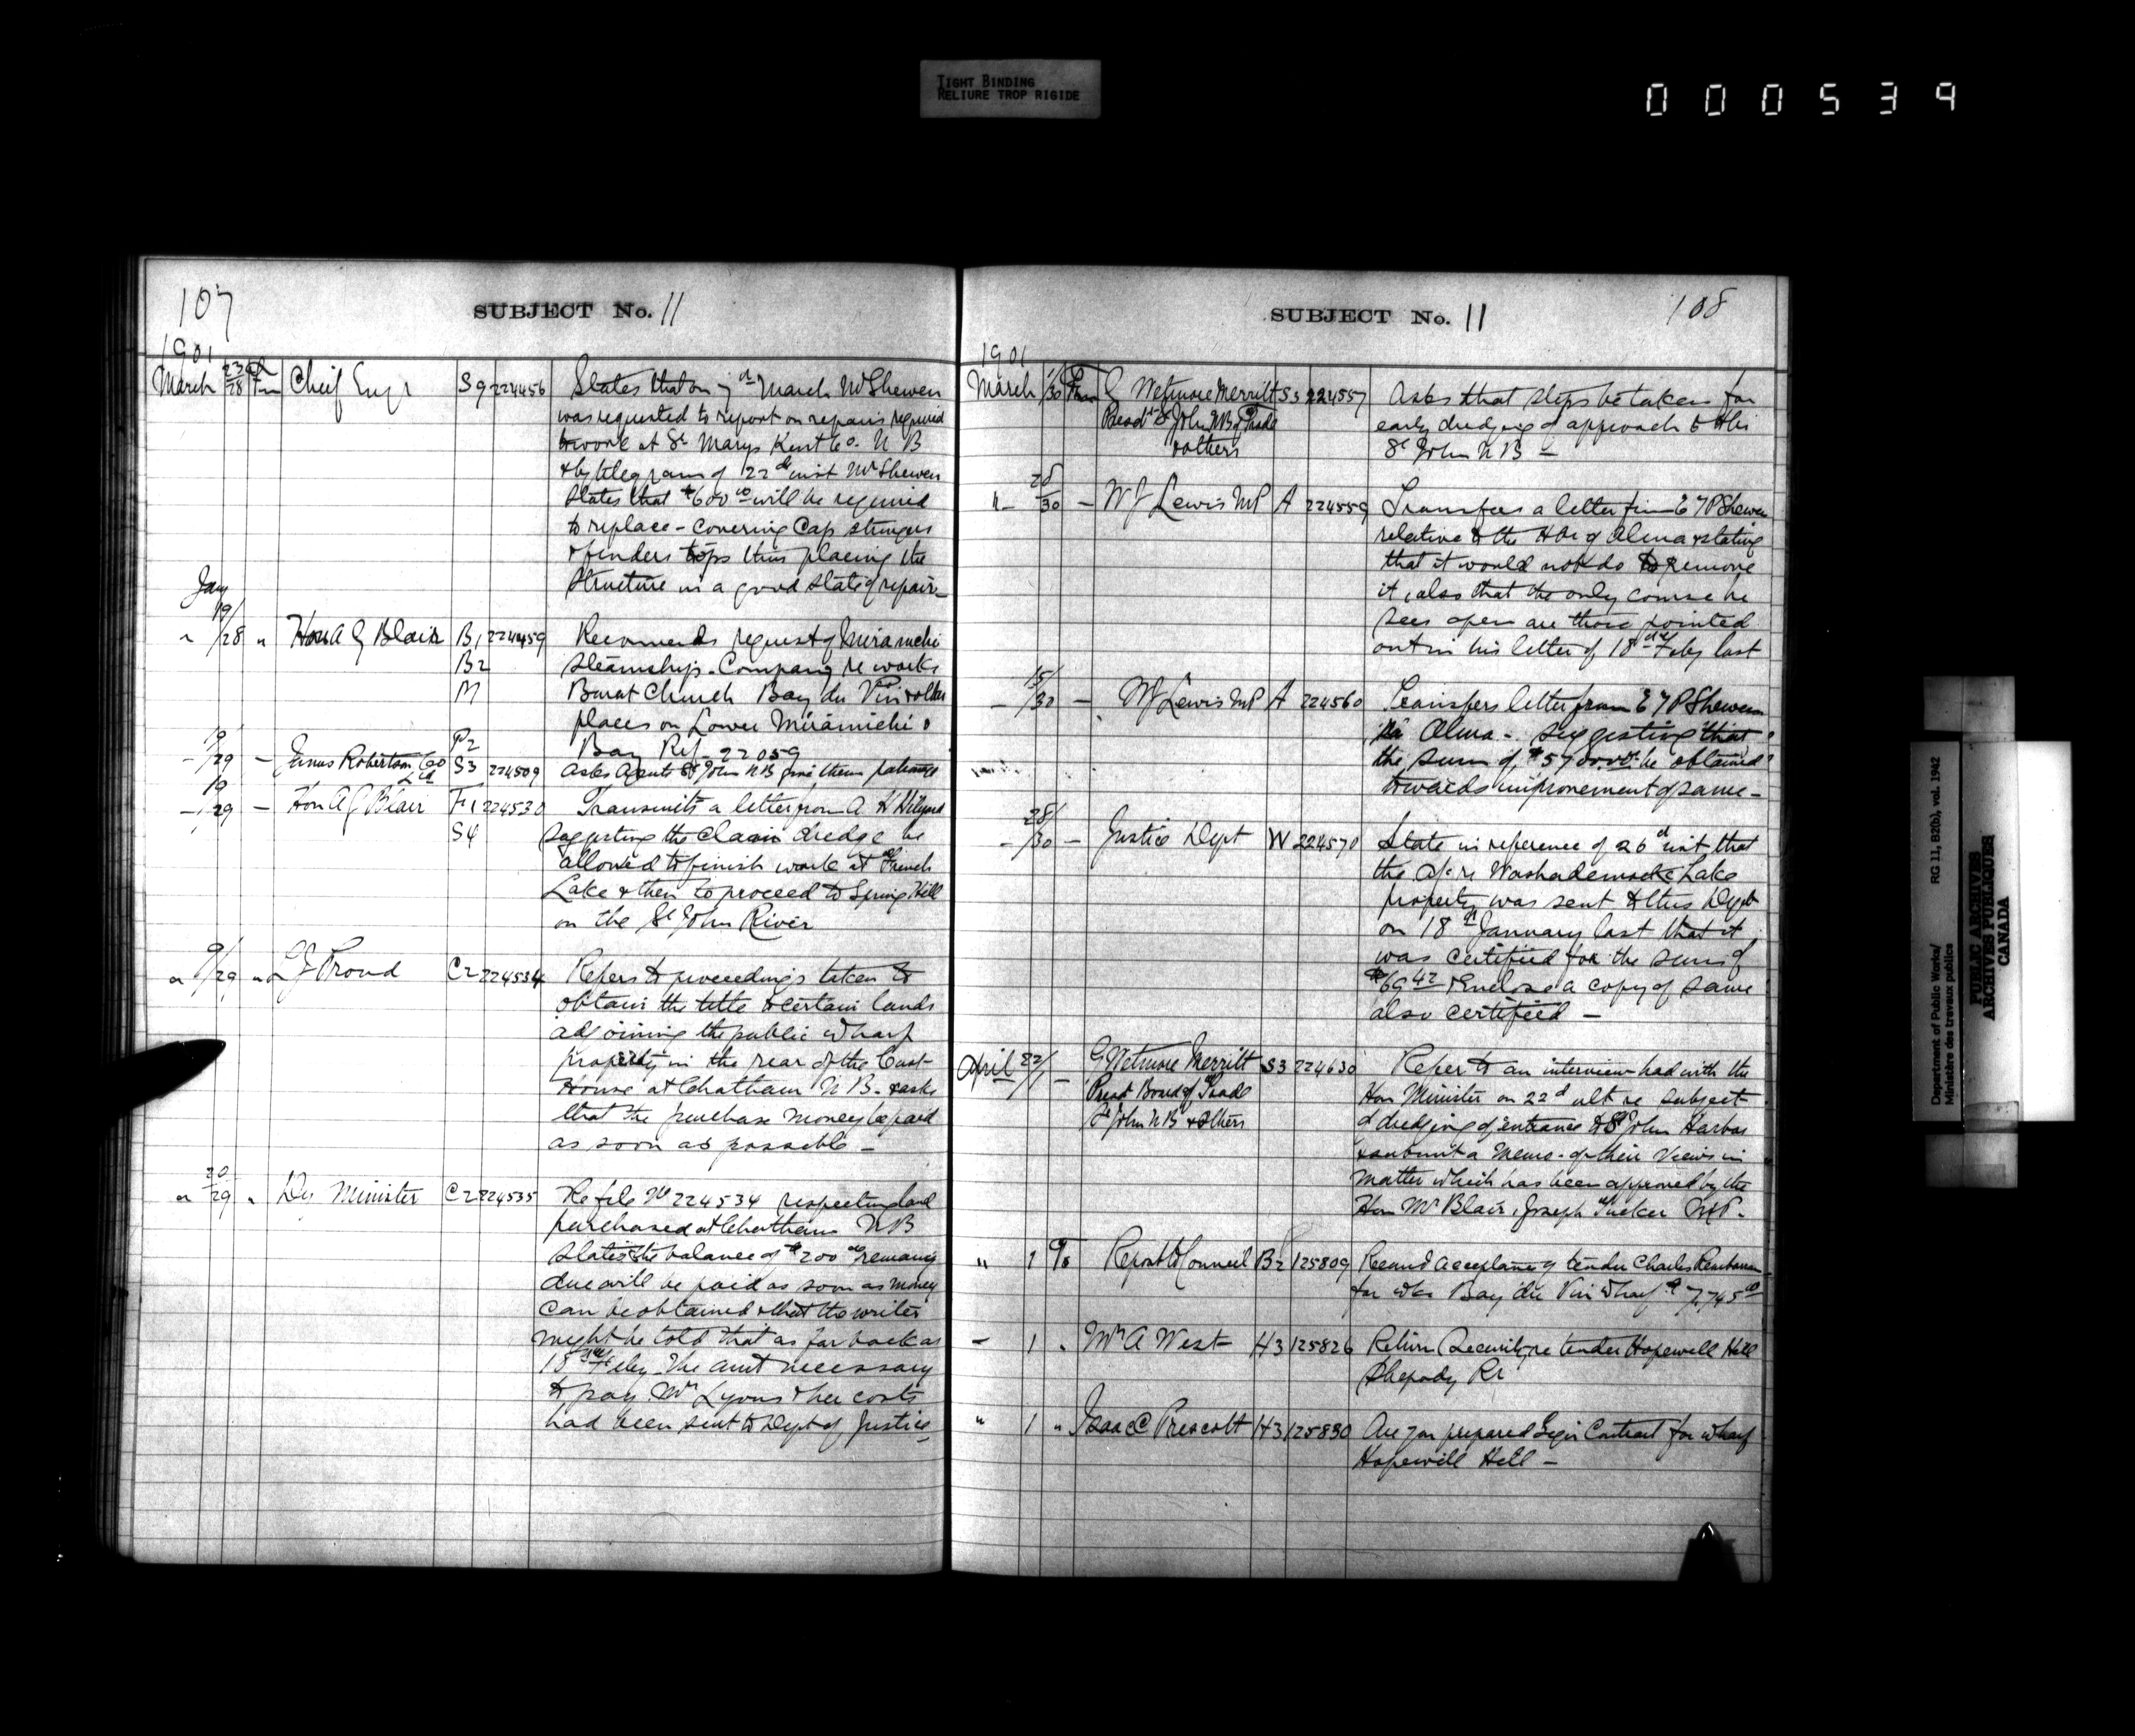 TIGHT BINDING
RELIURE TROP RIGIDE
000539
107
SUBJECT No. 11
1901
March 23/28 Chief Engr S9 224456 States that on 7 March Mr Shewen
was requested to report on repairs required
to work at St Marys Kent Co. N B
& by telegram of 22d inst Mr Shewen
states that $600 00 will be required
to replace - covering Cap stringers
& fenders tops thus placing the
structure in a good state of repair -
Jany
19/28 " Hon A G Blair B1 224459 Recommends request of Miramichi
B2 Steamship Company re works
M Burnt Church Bay du Vin & other
places on Lower Miramichi
P2 Bay Ref - 22059
19/29 - James Robertson Co Ltd S3 224509 Asks Agents St John NB give them patronage
19/29 - Hon A G Blair F1 224530 Transmits a letter from A H Hilyard
S4 suggesting the dredge be
allowed to finish work at French
Lake & then to proceed to Spring Hill
on the St John River
" 9/29 " L J Proud C2 224534 Refers to proceedings taken to
obtain the title to certain lands
adjoining the public wharf
property in the rear of the Cust-
House at Chatham N B. & asks
that the purchase money be paid
as soon as possible -
" 20/29 " Dy Minister C2 224535 Re file No 224534 respecting land
purchased at Chatham NB
States the balance of $200 00 remaining
due will be paid as soon as money
can be obtained & that the writer
might be told that as far back as
18 Feby the amt necessary
to pay Mr Lyons & her costs
had been sent to Dept of Justice -
SUBJECT No. 11
108
1901
March 1/30 From G Wetmore Merritt S3 224557 Asks that steps be taken for
Presdt St John NB of Trade early dredging of approach to Hbr
& others St John N B -
" - 28/30 - W J Lewis MP A 224559 Transfers a letter from E T P Shewen
relative to the Hbr of Alma & stating
that it would not do to remove
it, also that the only course he
sees open are those pointed
out in his letter of 18th Feby last
- 15/30 - W J Lewis MP A 224560 Transfers letter from E T P Shewen
re Alma - suggesting that
the sum of be obtained
towards improvement of same -
- 28/30 - Justice Dept W 224570 State in reference of 26 inst that
the a/c re Washademoak Lake
property was sent to this Dept
on 18th January last that it
was certified for the sum of
$69 42 & Enclose a copy of same
also certified -
April 22/ - G Wetmore Merritt S3 224630 Refer to an interview had with the
Presdt Board of Trade Hon Minister on 22d ult re subject
St John NB & Others of dredging of entrance to St John Harbor
& submit a Memo. of their views in
matter which has been approved by the
Hon Mr Blair, Joseph Tucker M P.
" 1 To Report to Council B2 125809 Recomd acceptance of tender Charles
for wks Bay du Vin Wharf $ 7,745 00
" 1 " Mr A West H3 125826 Return Security re tender Hopewell Hill
Shepody Rr
" 1 " Isaac C Prescott H3 125830 Are you prepared sign Contract for wharf
Hopewell Hill -
Department of Public Works/
Ministère des travaux publics
RG 11, B2(b), vol. 1942
PUBLIC ARCHIVES
ARCHIVES PUBLIQUES
CANADA